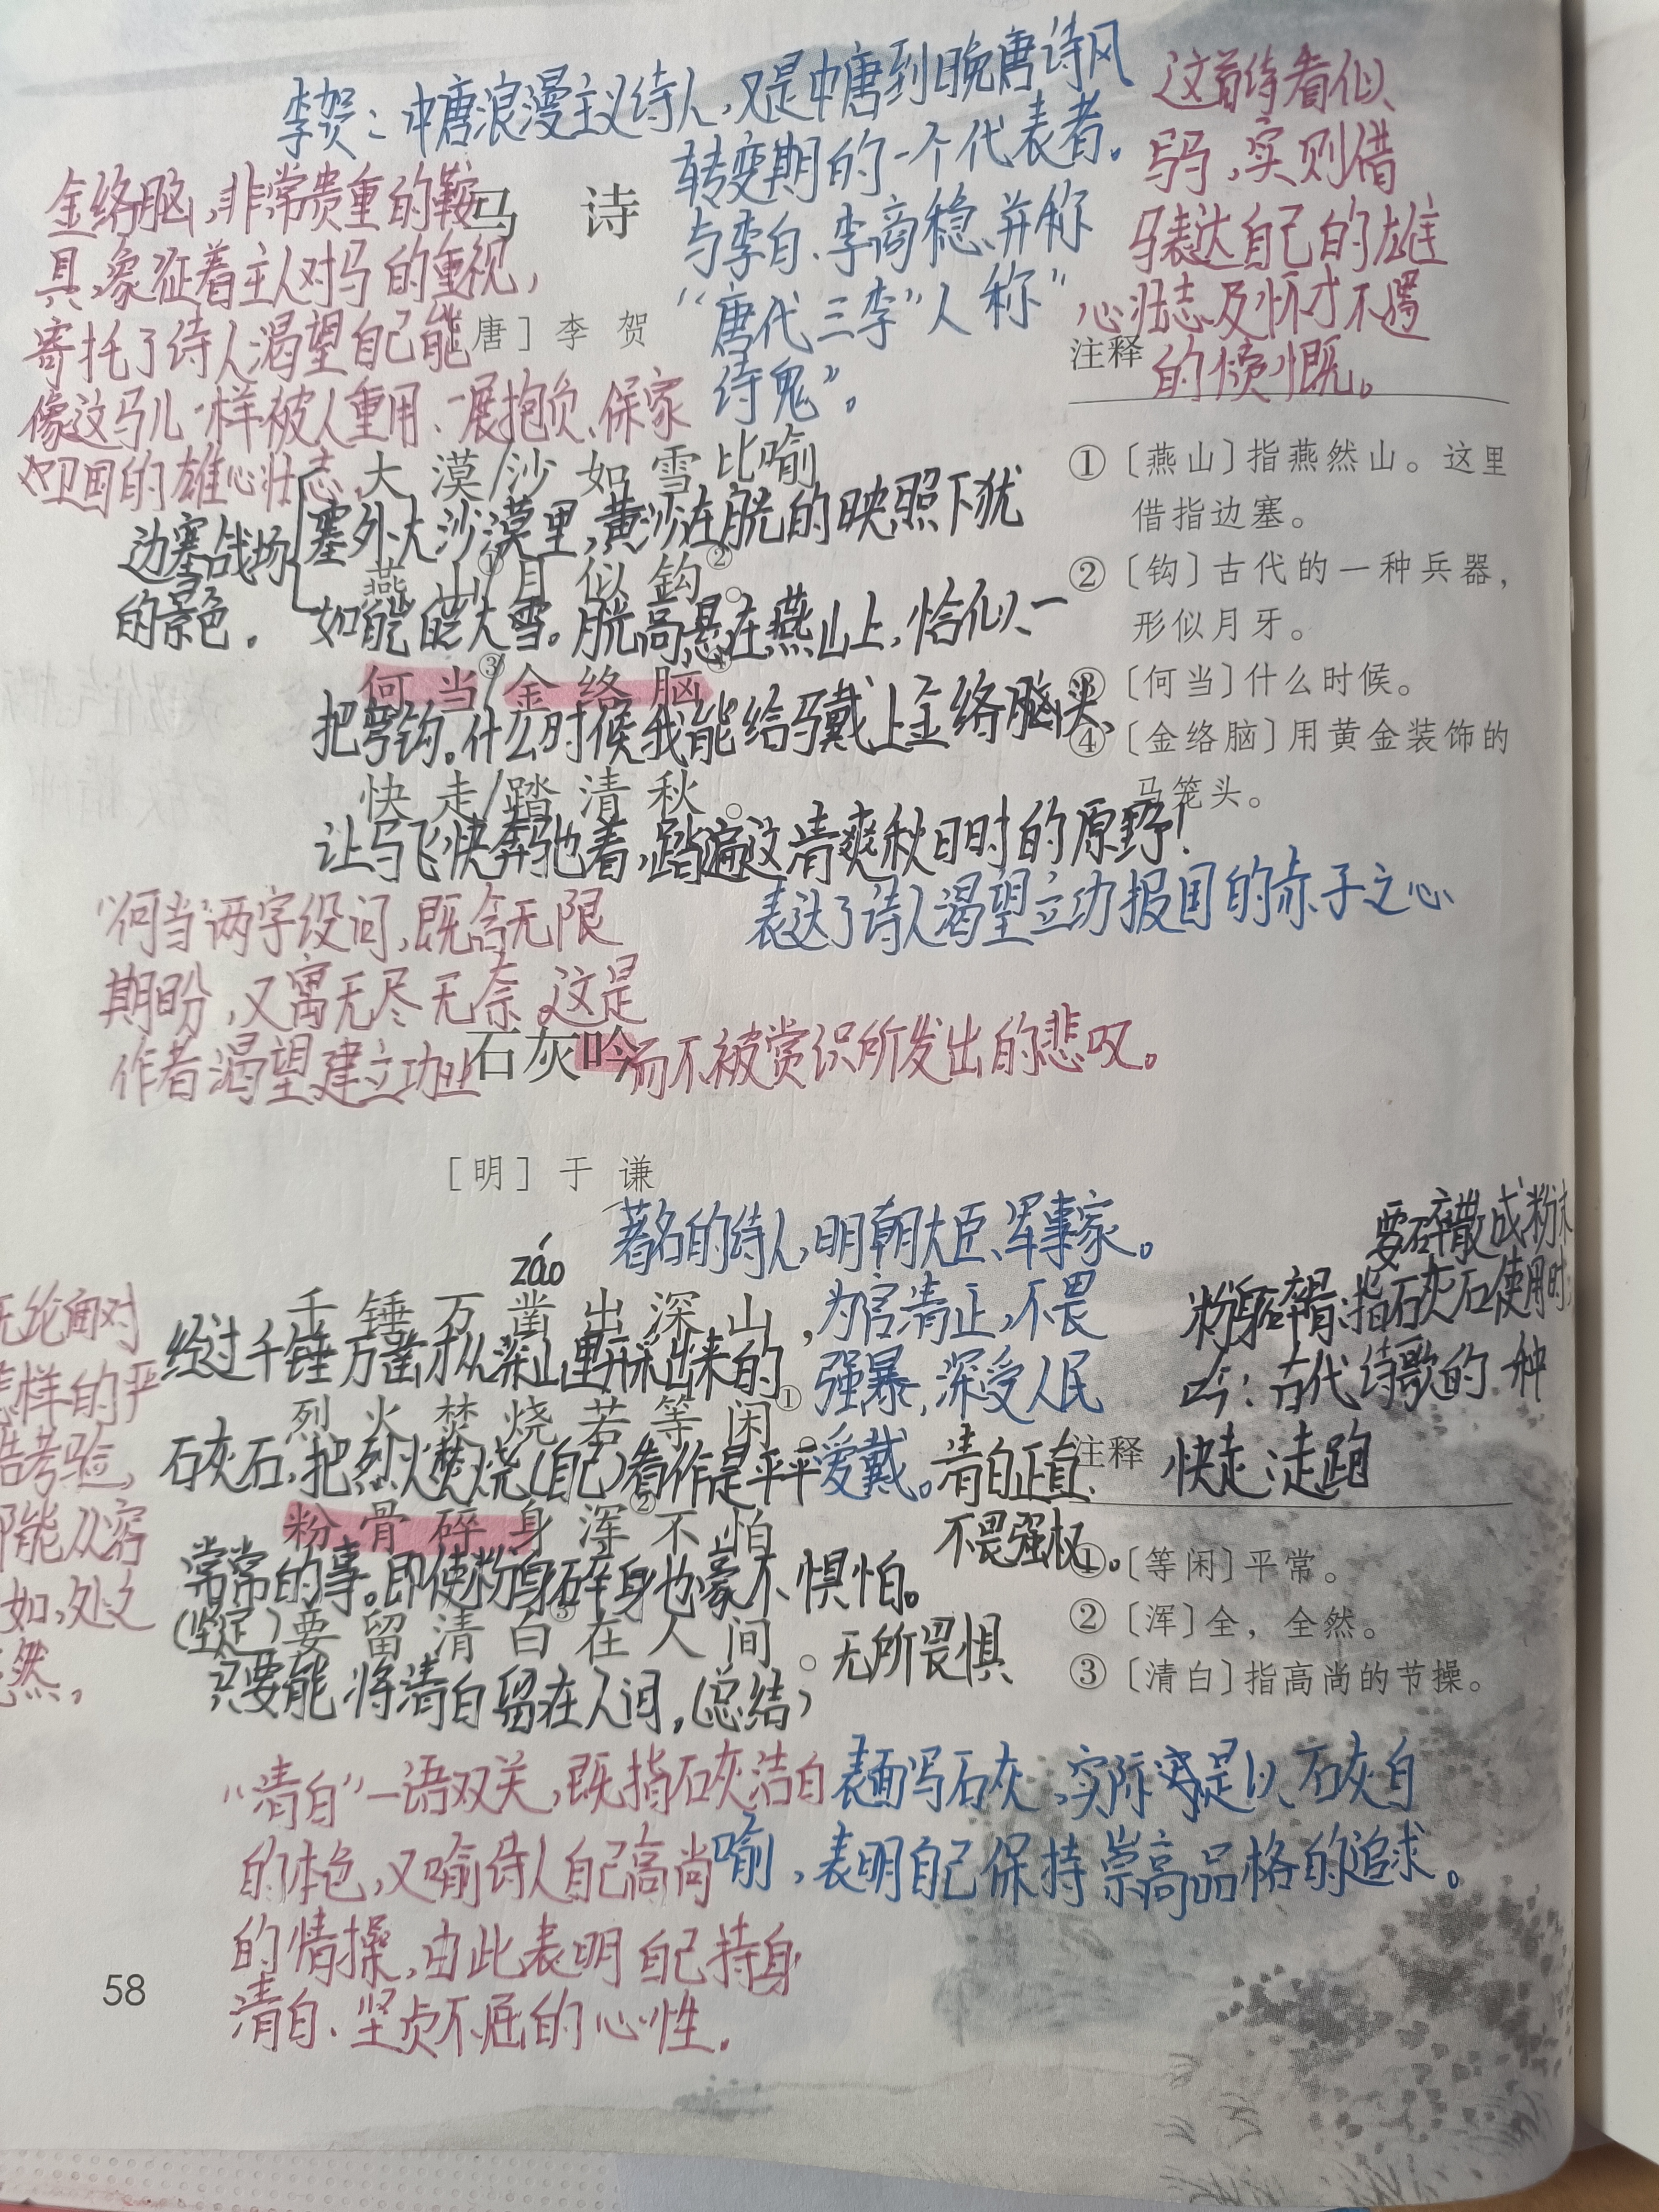 李贺：中唐浪漫主义诗人，又是中唐到晚唐诗风
转变期的一个代表者。
与李白、李商稳并称
“唐代三李”人称“
诗鬼”。
这首诗看似
写马，实则借
马表达自己的雄
心壮志及怀才不遇
的愤慨。
金络脑，非常贵重的鞍
具，象征着主人对马的重视，
寄托了诗人渴望自己能
像这马儿一样被人重用、一展抱负、保家
卫国的雄心壮志。
马 诗
［唐］李 贺
大漠/沙如雪 比喻
塞外大沙漠里，黄沙在月光的映照下犹
边塞战场
的景色。
燕山①/月似钩②。
如皑皑大雪。月光高悬在燕山上，恰似一
何当③/金络脑④
把弯钩。什么时候我能给马戴上金络脑头、
快走/踏清秋。
让马飞快奔驰着，踏遍这清爽秋日时的原野！
表达了诗人渴望立功报国的赤子之心
“何当”两字设问，既含无限
期盼，又寓无尽无奈 这是
作者渴望建立功业
而不被赏识所发出的悲叹。
注释
①［燕山］指燕然山。这里
借指边塞。
②［钩］古代的一种兵器，
形似月牙。
③［何当］什么时候。
④［金络脑］用黄金装饰的
马笼头。
石灰吟
［明］于 谦
著名的诗人，明朝大臣、军事家。
为官清正，不畏
强暴，深受人民
爱戴。清白正直、
不畏强权。
záo
千锤万凿出深山，
经过千锤万凿才从深山里开采出来的
烈火焚烧若等闲①。
石灰石，把烈火焚烧(自己)看作是平平
粉骨碎身浑②不怕
常常的事。即使粉身碎身也豪不惧怕。
(坚定)要留清白③在人间。无所畏惧
只要能将清白留在人间，(总结)
无论面对
怎样的严
酷考验，
都能从容
如，处之
然，
要碎散成粉末
粉身碎骨：指石灰石使用时
吟：古代诗歌的一种
快走：走跑
注释
①［等闲］平常。
②［浑］全，全然。
③［清白］指高尚的节操。
“清白”一语双关，既指石灰洁白
的本色，又喻诗人自己高尚
的情操，由此表明自己持身
清白、坚贞不屈的心性。
表面写石灰，实际是以石灰自
喻，表明自己保持崇高品格的追求。
58